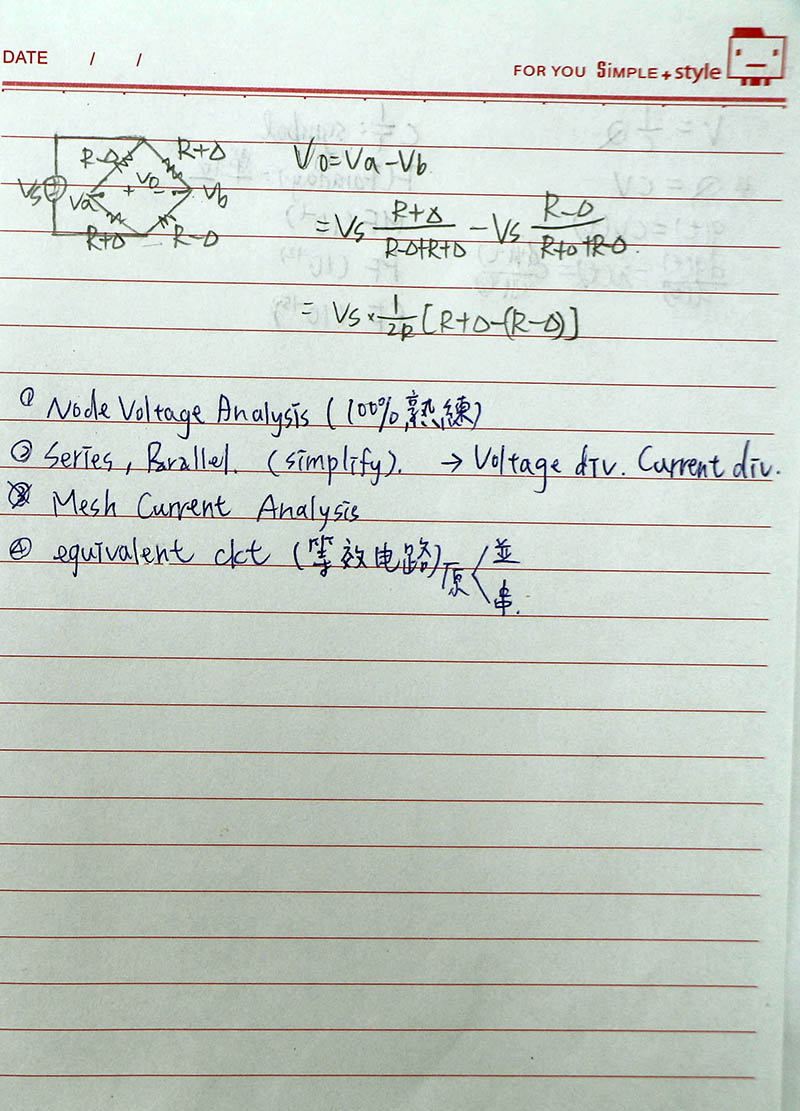 DATE / /
FOR YOU SIMPLE+style
R-Δ R+Δ
Vs Va + Vo - Vb
R+Δ R-Δ
Vo=Va-Vb
=Vs (R+Δ)/(R-Δ+R+Δ) - Vs (R-Δ)/(R+Δ+R-Δ)
= Vs × 1/2R [R+Δ-(R-Δ)]
① Node Voltage Analysis (100%熟練)
② Series, Parallel. (simplify). → Voltage div. Current div.
③ Mesh Current Analysis
④ equivalent ckt (等效电路) 原 並
串.